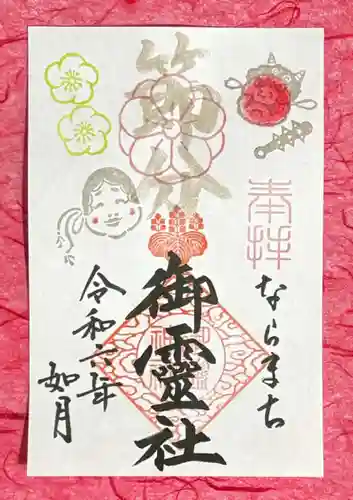 奉拝
ならまち
節分
御霊社
令和六年
如月